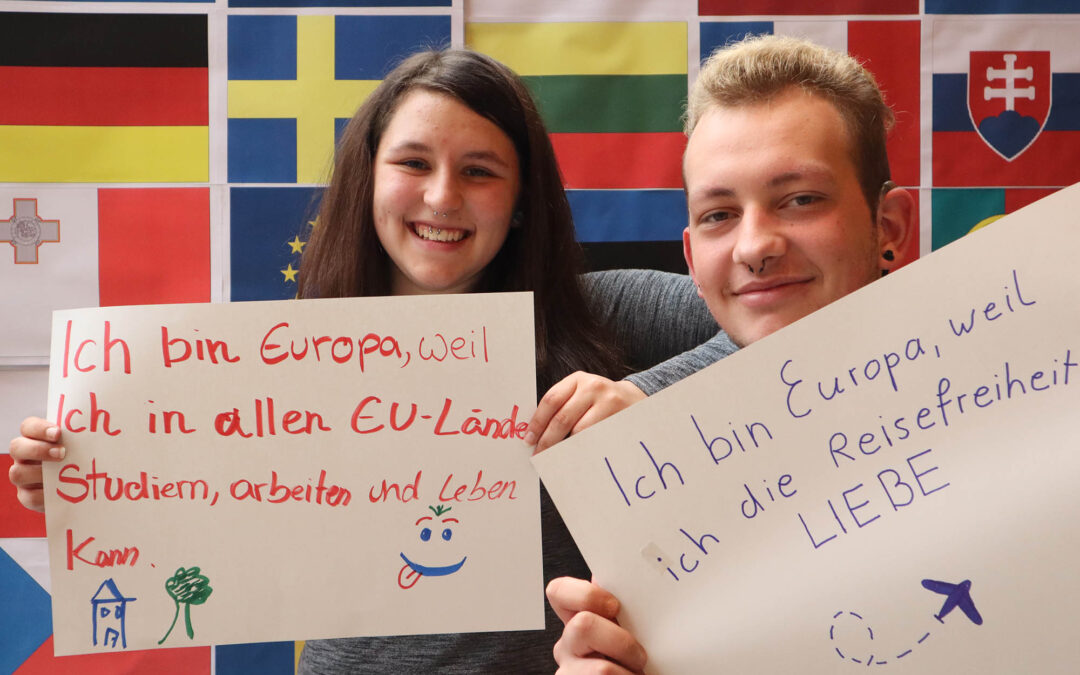 Ich bin Europa, weil
Ich in allen EU-Länder
Studiern, arbeiten und Leben
Kann.
Ich bin Europa, weil
ich die Reisefreiheit
LIEBE